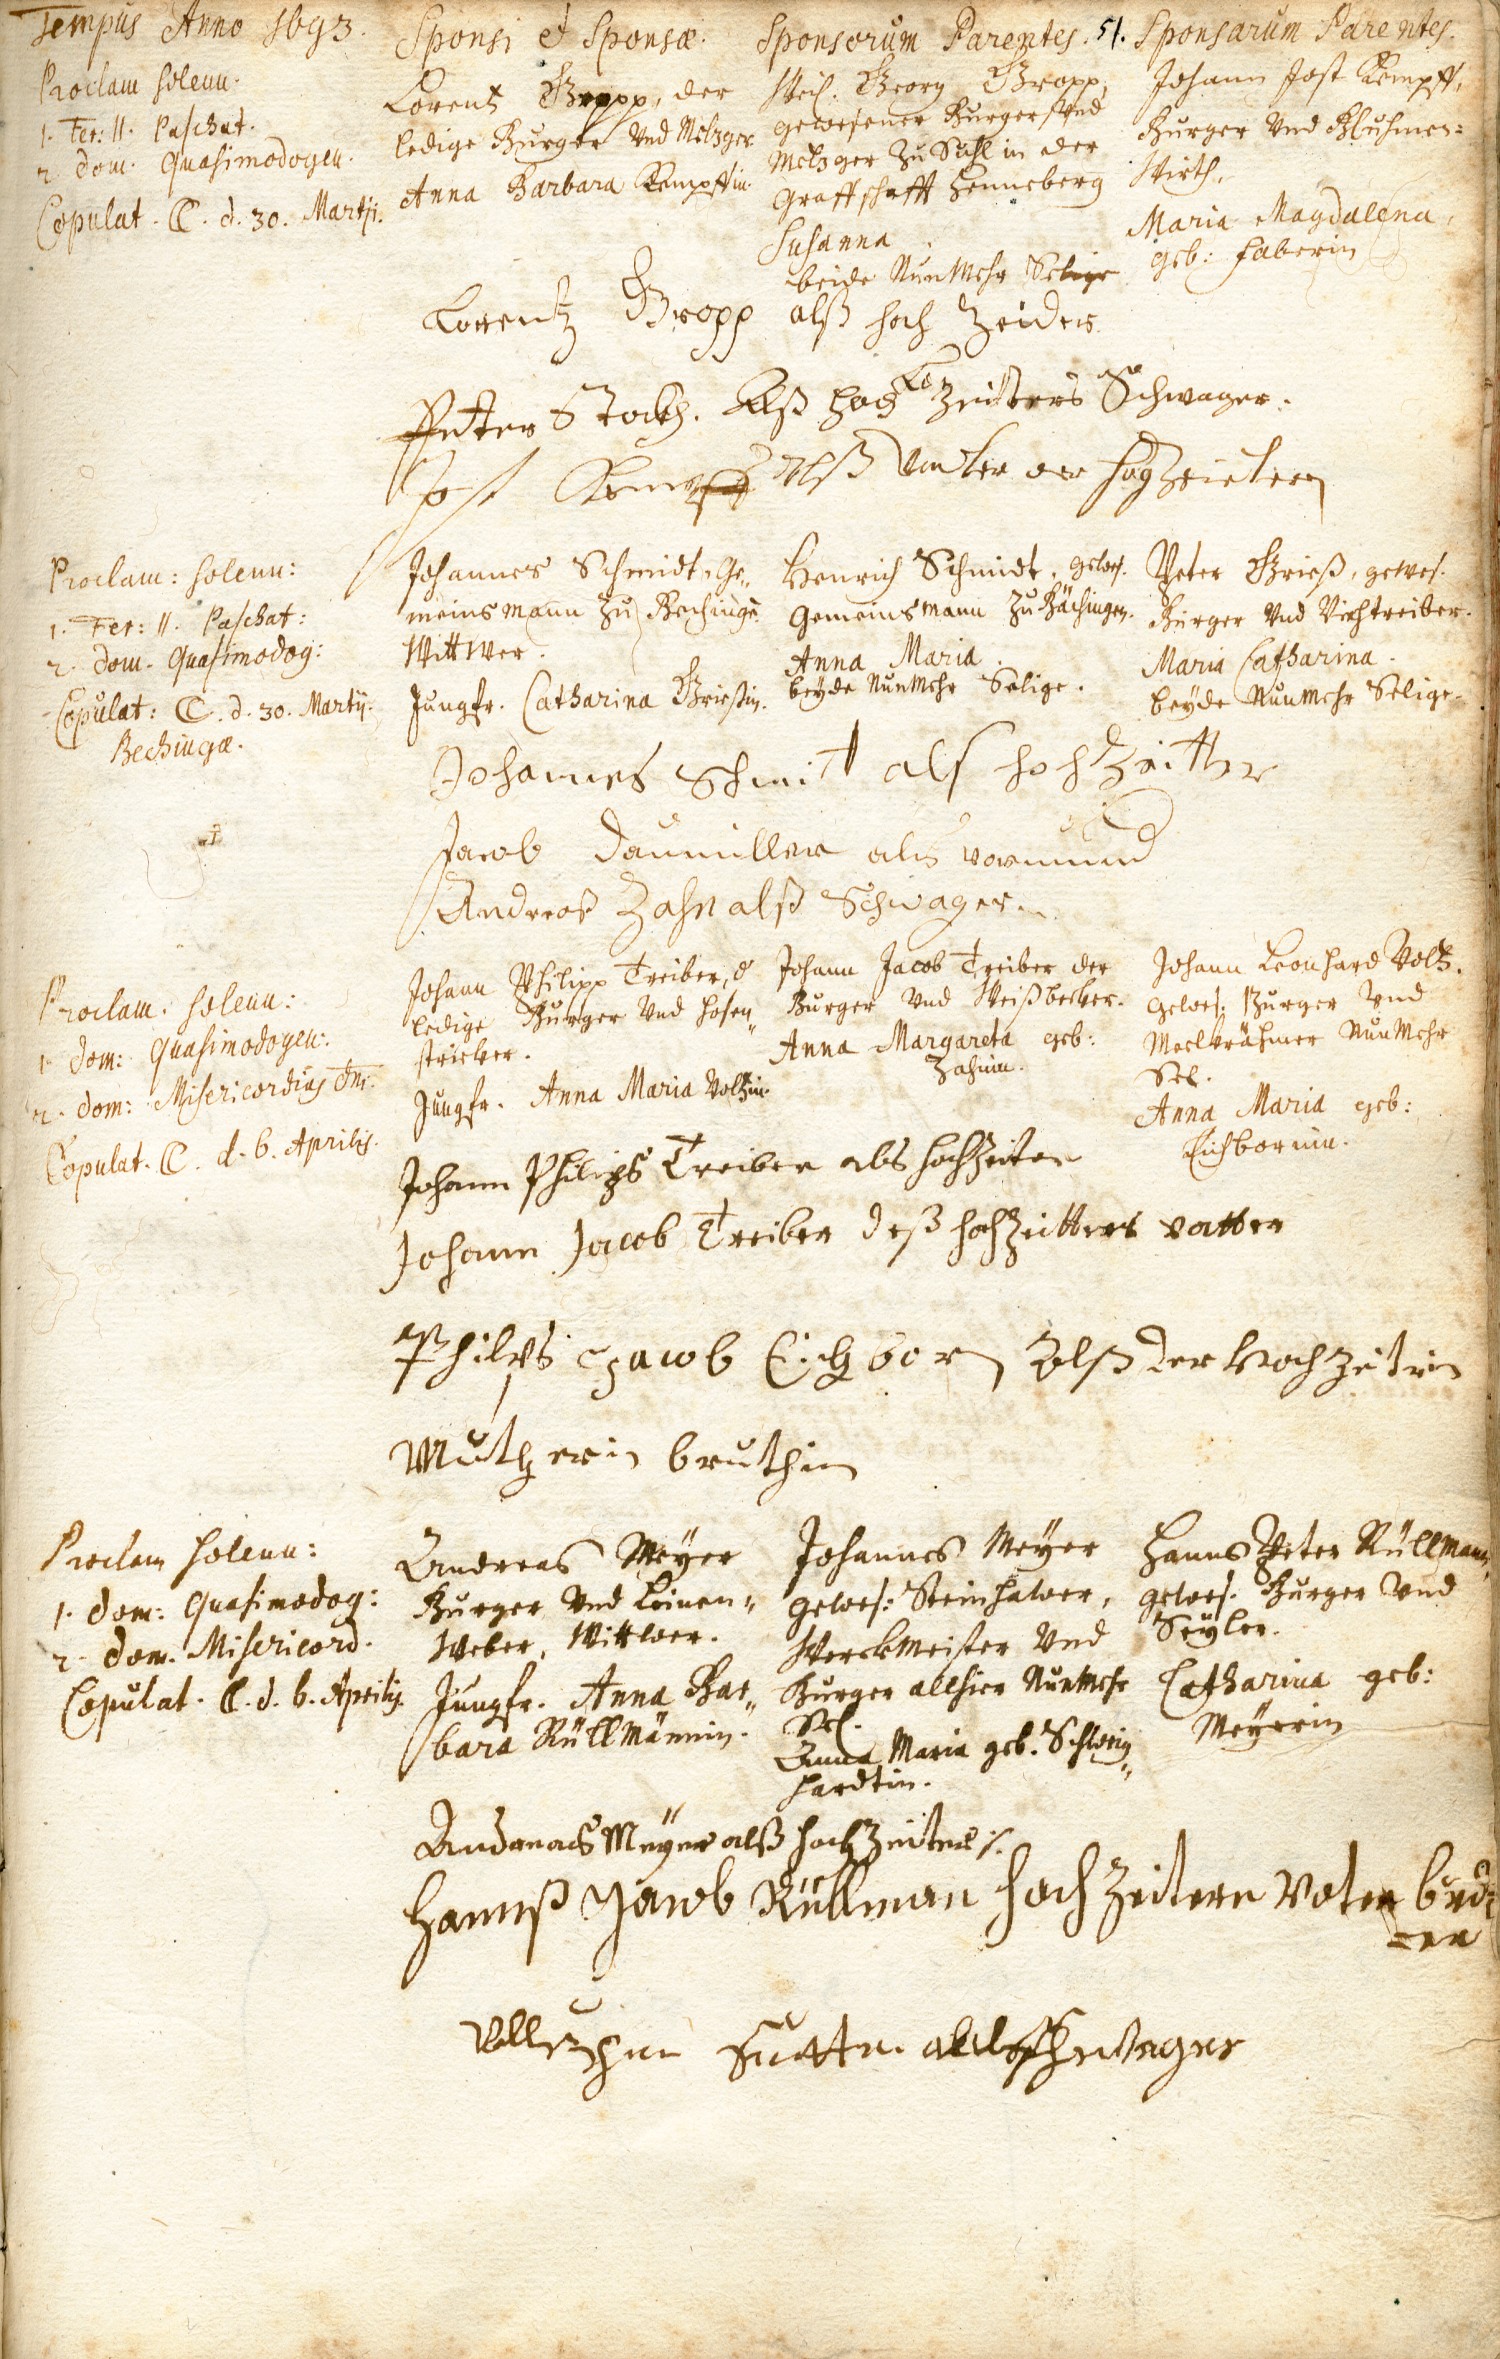 Tempus Anno 1693.
Sponsi et Sponsæ.
Sponsorum Parentes.
51.
Sponsarum Parentes.
Proclam solenn.
1. Fer: II. Paschat.
2. dom. Quasimodogen.
Copulat. C. d. 30. Martij.
Lorentz Gropp, der
ledige Burger und Metzger
Anna Barbara Kempffin.
Weil. Georg Gropp,
gewesener Burger und
Metzger zu Suhl in der
Graffschafft Henneberg
Susanna.
beide NunMehr Selige
Johann Jost Kempff,
Burger und Bluhmen-
Wirth.
Maria Magdalena,
geb: Faberin
Lorentz Gropp alß hoch Zeider
Peter Stock. Alß Hoch Zeitters Schwager.
Jost Kempff Alß Vatter der Hogzeitern
Proclam: solenn:
1. Fer: II. Paschat:
2. dom. Quasimodog:
Copulat: C. d. 30. Martij.
Bechingæ.
Johannes Schmidt, Ge-
meinsmann zu Bechinge
Wittwer.
Jungfr. Catharina Grießin.
Henrich Schmidt, gewes.
Gemeinsmann zu Bächingen.
Anna Maria.
beyde NunMehr Selige.
Peter Grieß, gewes.
Burger und Viehtreiber.
Maria Catharina.
beyde NunMehr Selige.
Johannes Schmitt als hochZeitter
Jacob Daumiller als vormund
Andreas Zahn alß Schwager
Proclam. solenn:
1. dom: Quasimodogen:
2. dom: Misericordias Dni.
Copulat. C. d. 6. Aprilis.
Johann Philipp Treiber, d
ledige Burger und Hosen-
stricker.
Jungfr. Anna Maria Voltzin.
Johann Jacob Treiber der
Burger und Weißbecker.
Anna Margareta geb:
Zahnin.
Johann Leonhard Voltz.
gewes: Burger und
Meelkrähmer NunMehr
Sel.
Anna Maria geb:
Eichbornin.
Johann Philips Treiber als hochzeiter
Johann Jacob Treiber deß hochzeitters vatter
Philips Jacob Eichborn Alß der Hochzeitrin
Mutterin bruther
Proclam solenn:
1. dom: Quasimodog:
2. dom. Misericord.
Copulat. C. d. 6. Aprilis.
Andreas Meyer
Burger und Leinen-
Weber, Wittwer.
Jungfr. Anna Bar-
bara Rüllmännin.
Johannes Meyer
gewes: Steinhawer,
Werckmeister und
Burger allhier NunMehr
Sel.
Anna Maria geb. Schwein-
hardtin.
Hanns Peter Rüllmann,
gewes. Burger und
Seyler.
Catharina geb:
Meyerin
Andreas Meyer alß hochZeiter
Hannß Jacob Rüllman hochZeitern Voter brud-
der